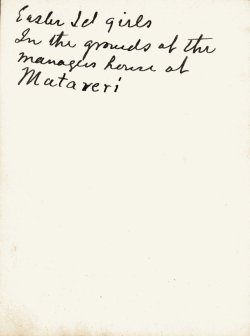 Easter Isl girls
In the grounds of the
managers house at
Mataveri